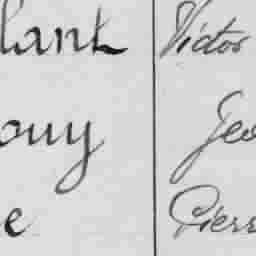 lank Victor
ouy Geo
e Pierr